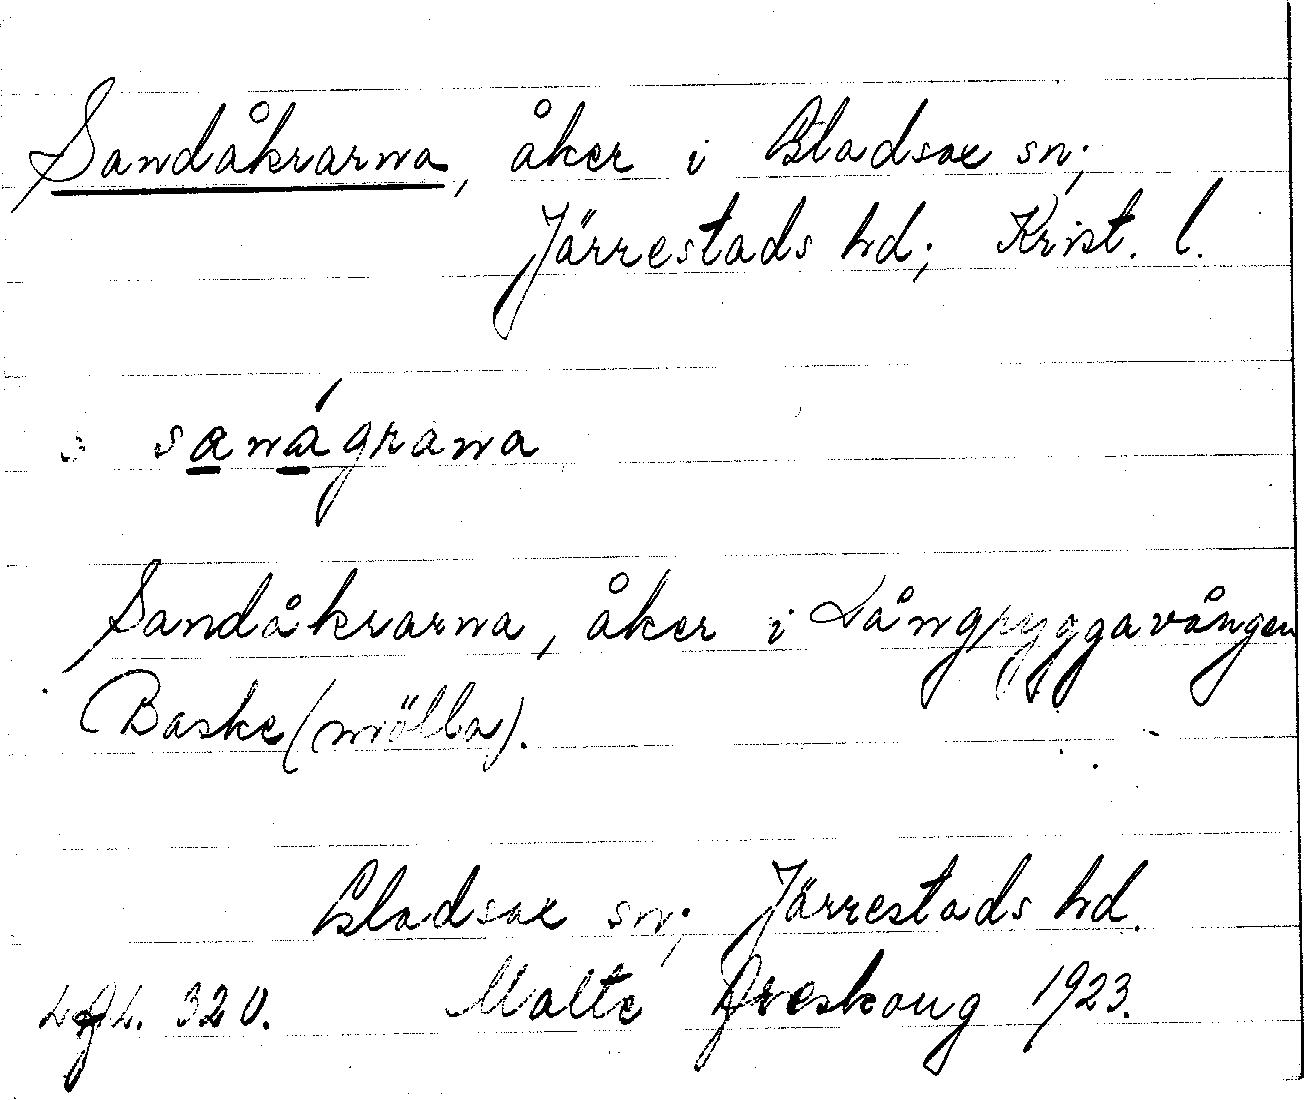 Sandåkrarna, åker i Gladsax sn;
Järrestads hd; Krist. l.
sanágrana
Sandåkrarna, åker i Långryggavången
Baske(mölla).
Gladsax sn; Järrestads hd.
320. Malte Areskoug 1923.